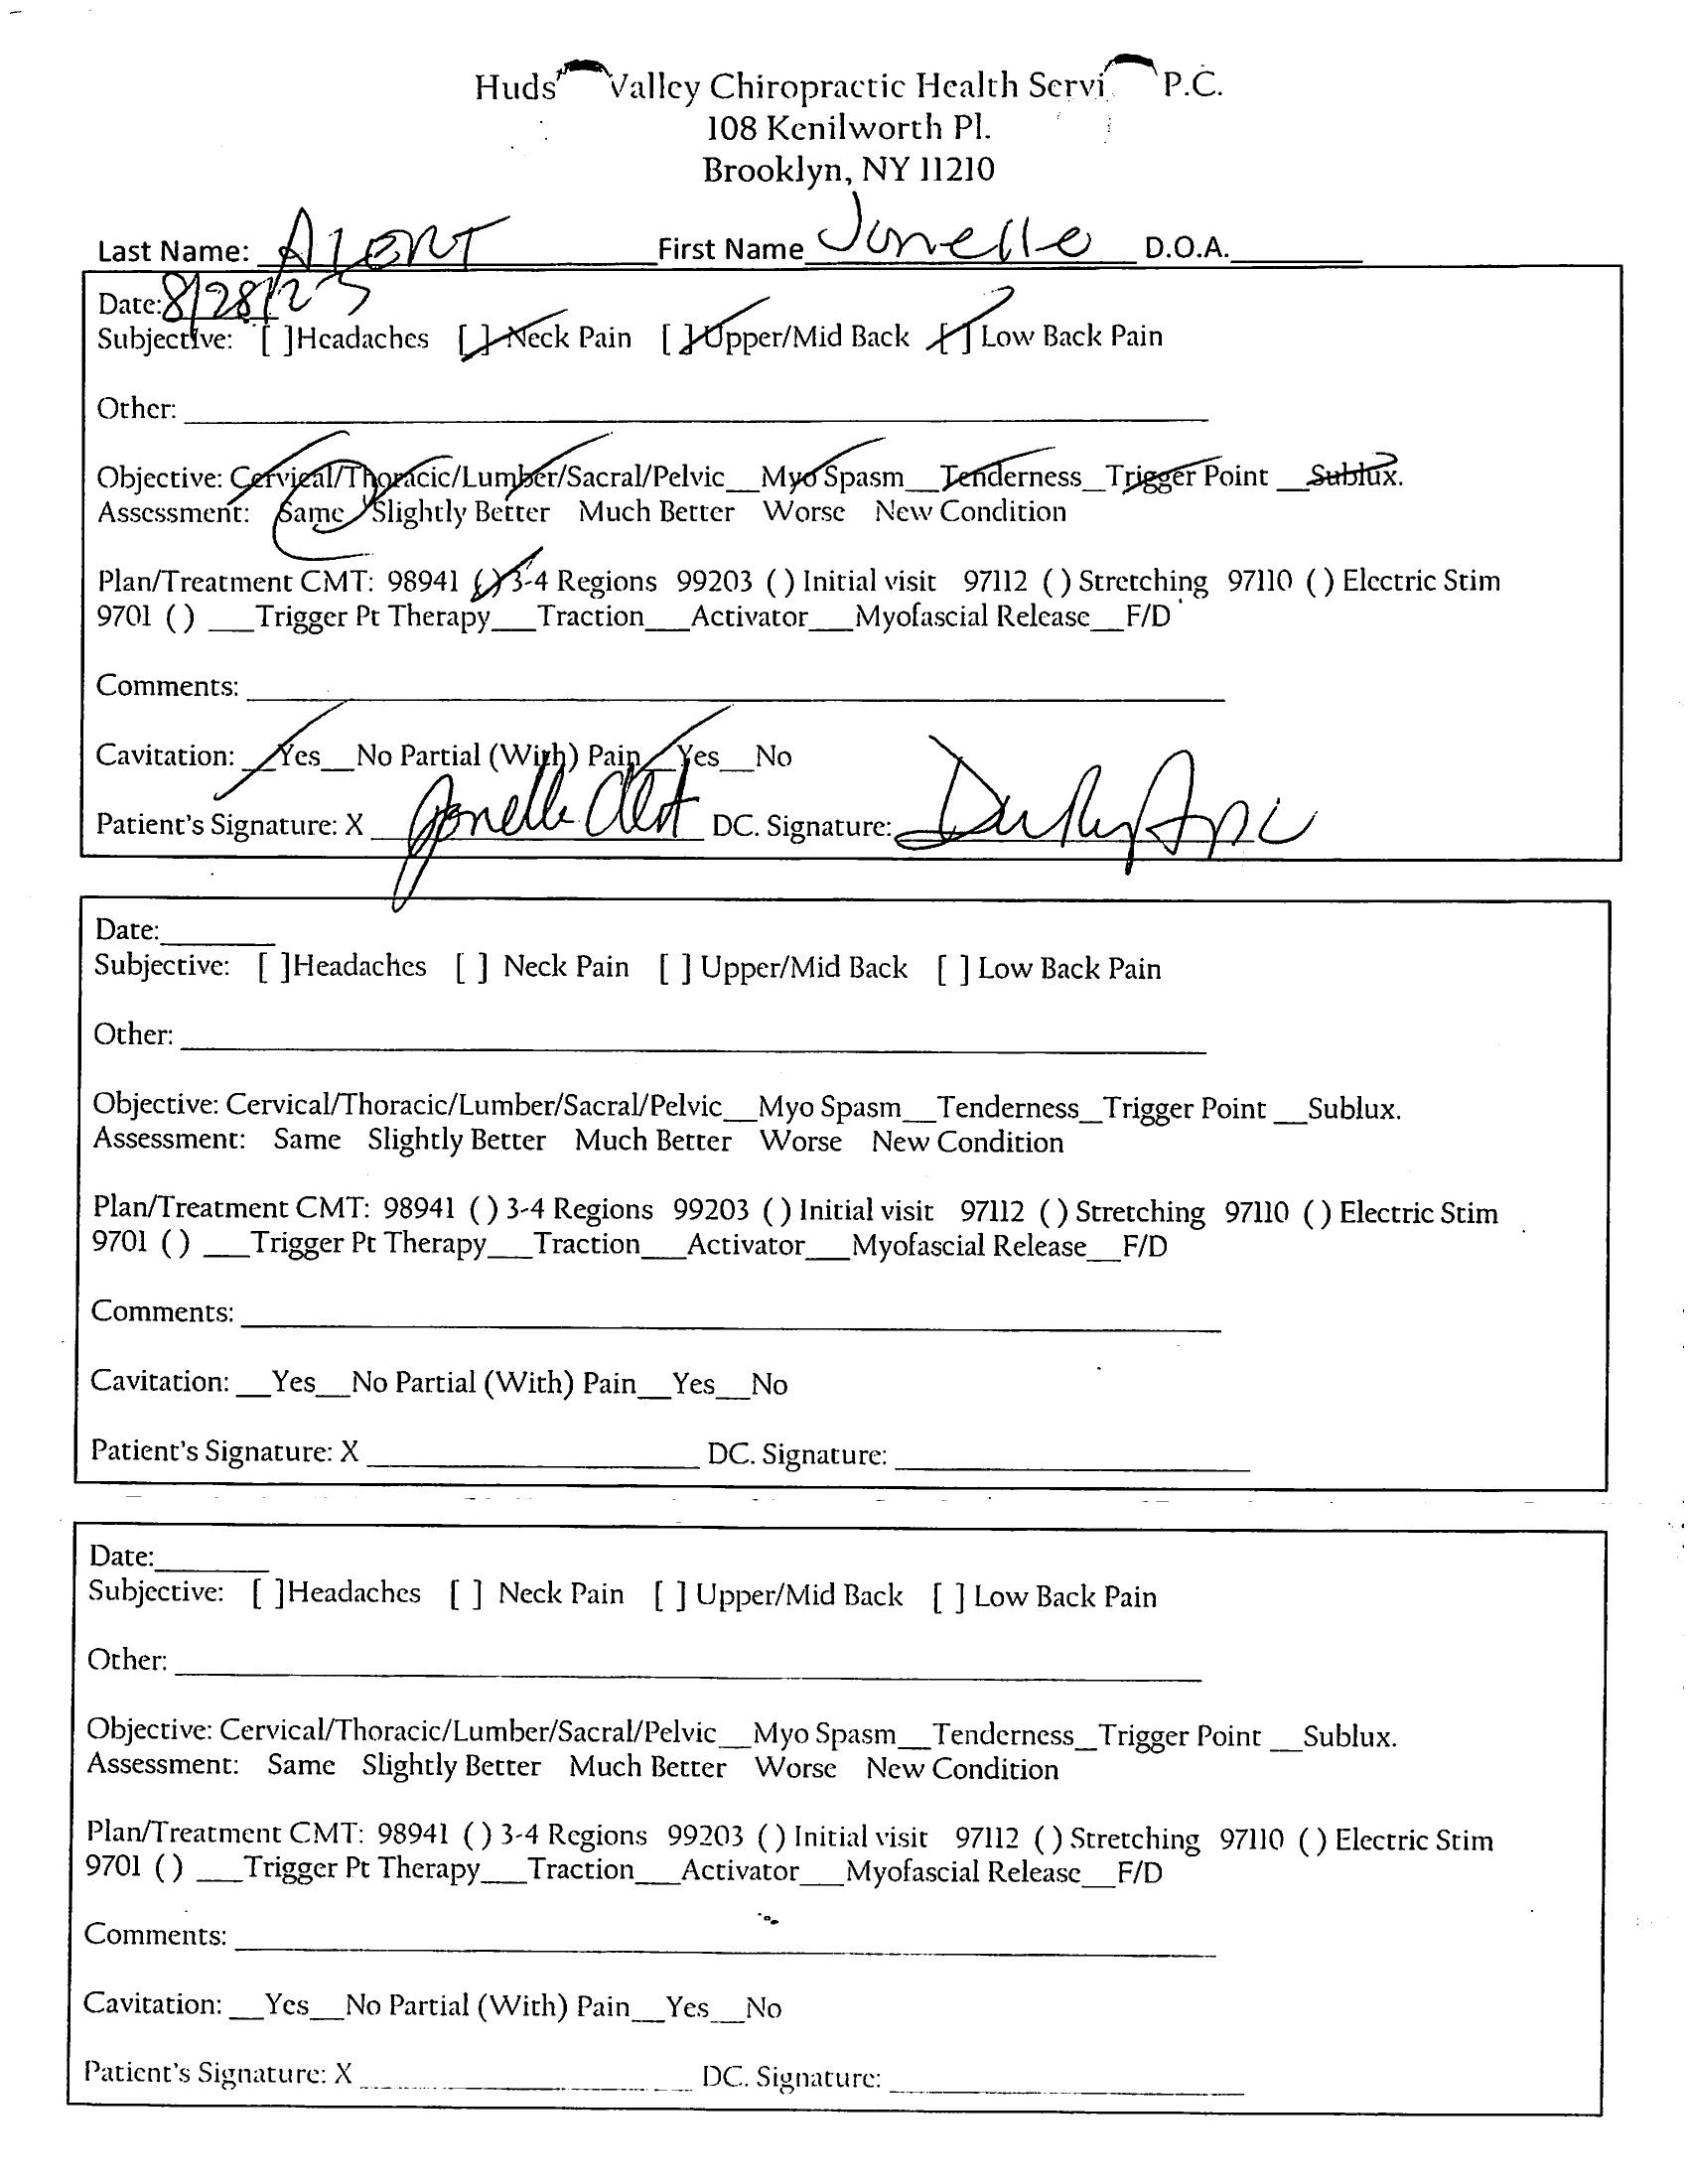 Huds Valley Chiropractic Health Servi P.C.
108 Kenilworth Pl.
Brooklyn, NY 11210
Last Name: First Name Jonelle D.O.A.
Date: 8/28/23
Subjective: [ ]Headaches [ ] Neck Pain [ ] Upper/Mid Back [ ] Low Back Pain
Other:
Objective: Cervical/Thoracic/Lumber/Sacral/Pelvic__Myo Spasm__Tenderness_Trigger Point __Sublux.
Assessment: Same Slightly Better Much Better Worse New Condition
Plan/Treatment CMT: 98941 ( ) 3-4 Regions 99203 ( ) Initial visit 97112 ( ) Stretching 97110 ( ) Electric Stim
9701 ( ) ___Trigger Pt Therapy___Traction___Activator___Myofascial Release__F/D
Comments:
Cavitation: __Yes__No Partial (With) Pain__Yes__No
Patient's Signature: X Jonelle DC. Signature:
Date:
Subjective: [ ]Headaches [ ] Neck Pain [ ] Upper/Mid Back [ ] Low Back Pain
Other:
Objective: Cervical/Thoracic/Lumber/Sacral/Pelvic__Myo Spasm__Tenderness_Trigger Point __Sublux.
Assessment: Same Slightly Better Much Better Worse New Condition
Plan/Treatment CMT: 98941 ( ) 3-4 Regions 99203 ( ) Initial visit 97112 ( ) Stretching 97110 ( ) Electric Stim
9701 ( ) ___Trigger Pt Therapy___Traction___Activator___Myofascial Release__F/D
Comments:
Cavitation: __Yes__No Partial (With) Pain__Yes__No
Patient's Signature: X DC. Signature:
Date:
Subjective: [ ]Headaches [ ] Neck Pain [ ] Upper/Mid Back [ ] Low Back Pain
Other:
Objective: Cervical/Thoracic/Lumber/Sacral/Pelvic__Myo Spasm__Tenderness_Trigger Point __Sublux.
Assessment: Same Slightly Better Much Better Worse New Condition
Plan/Treatment CMT: 98941 ( ) 3-4 Regions 99203 ( ) Initial visit 97112 ( ) Stretching 97110 ( ) Electric Stim
9701 ( ) ___Trigger Pt Therapy___Traction___Activator___Myofascial Release__F/D
Comments:
Cavitation: __Yes__No Partial (With) Pain__Yes__No
Patient's Signature: X DC. Signature: